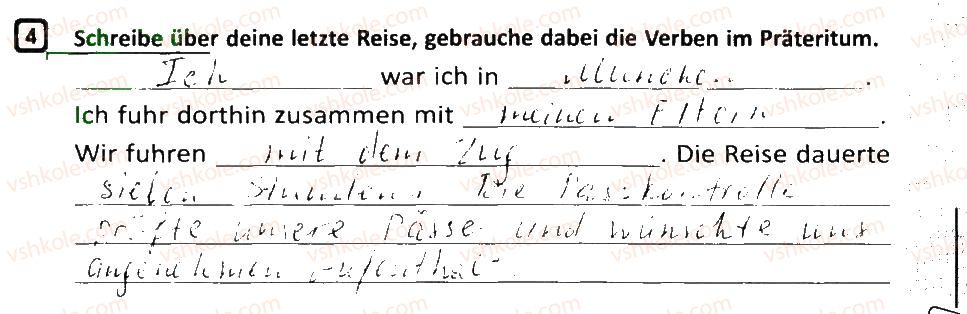 4 Schreibe über deine letzte Reise, gebrauche dabei die Verben im Präteritum.
Ich war ich in München.
Ich fuhr dorthin zusammen mit meinen Eltern.
Wir fuhren mit dem Zug. Die Reise dauerte
sieben Stunden. Die Passkontrolle
prüfte unsere Pässe und wünschte uns
angenehmen Aufenthalt.